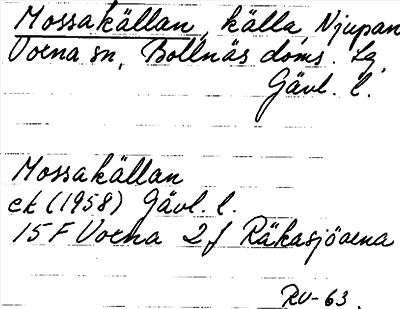 Mossakällan, källa, Njupan
Voxna sn, Bollnäs doms. Lg,
Gävl. l.
Mossakällan
ek (1958) Gävl. l.
15 F Voxna 2 f Räkasjövena
RV-63.